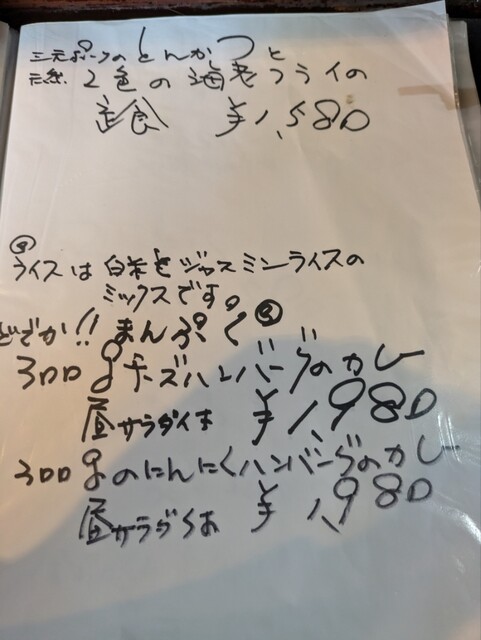 三元ポークのとんかつと
天然2色の海老フライの
定食 ¥1,580
ライスは白米とジャスミンライスの
ミックスです。
どでか!! まんぷく
300gチーズハンバーグのカレー
昼サラダ ¥1,980
300gのにんにくハンバーグのカレー
昼サラダ ¥1,980